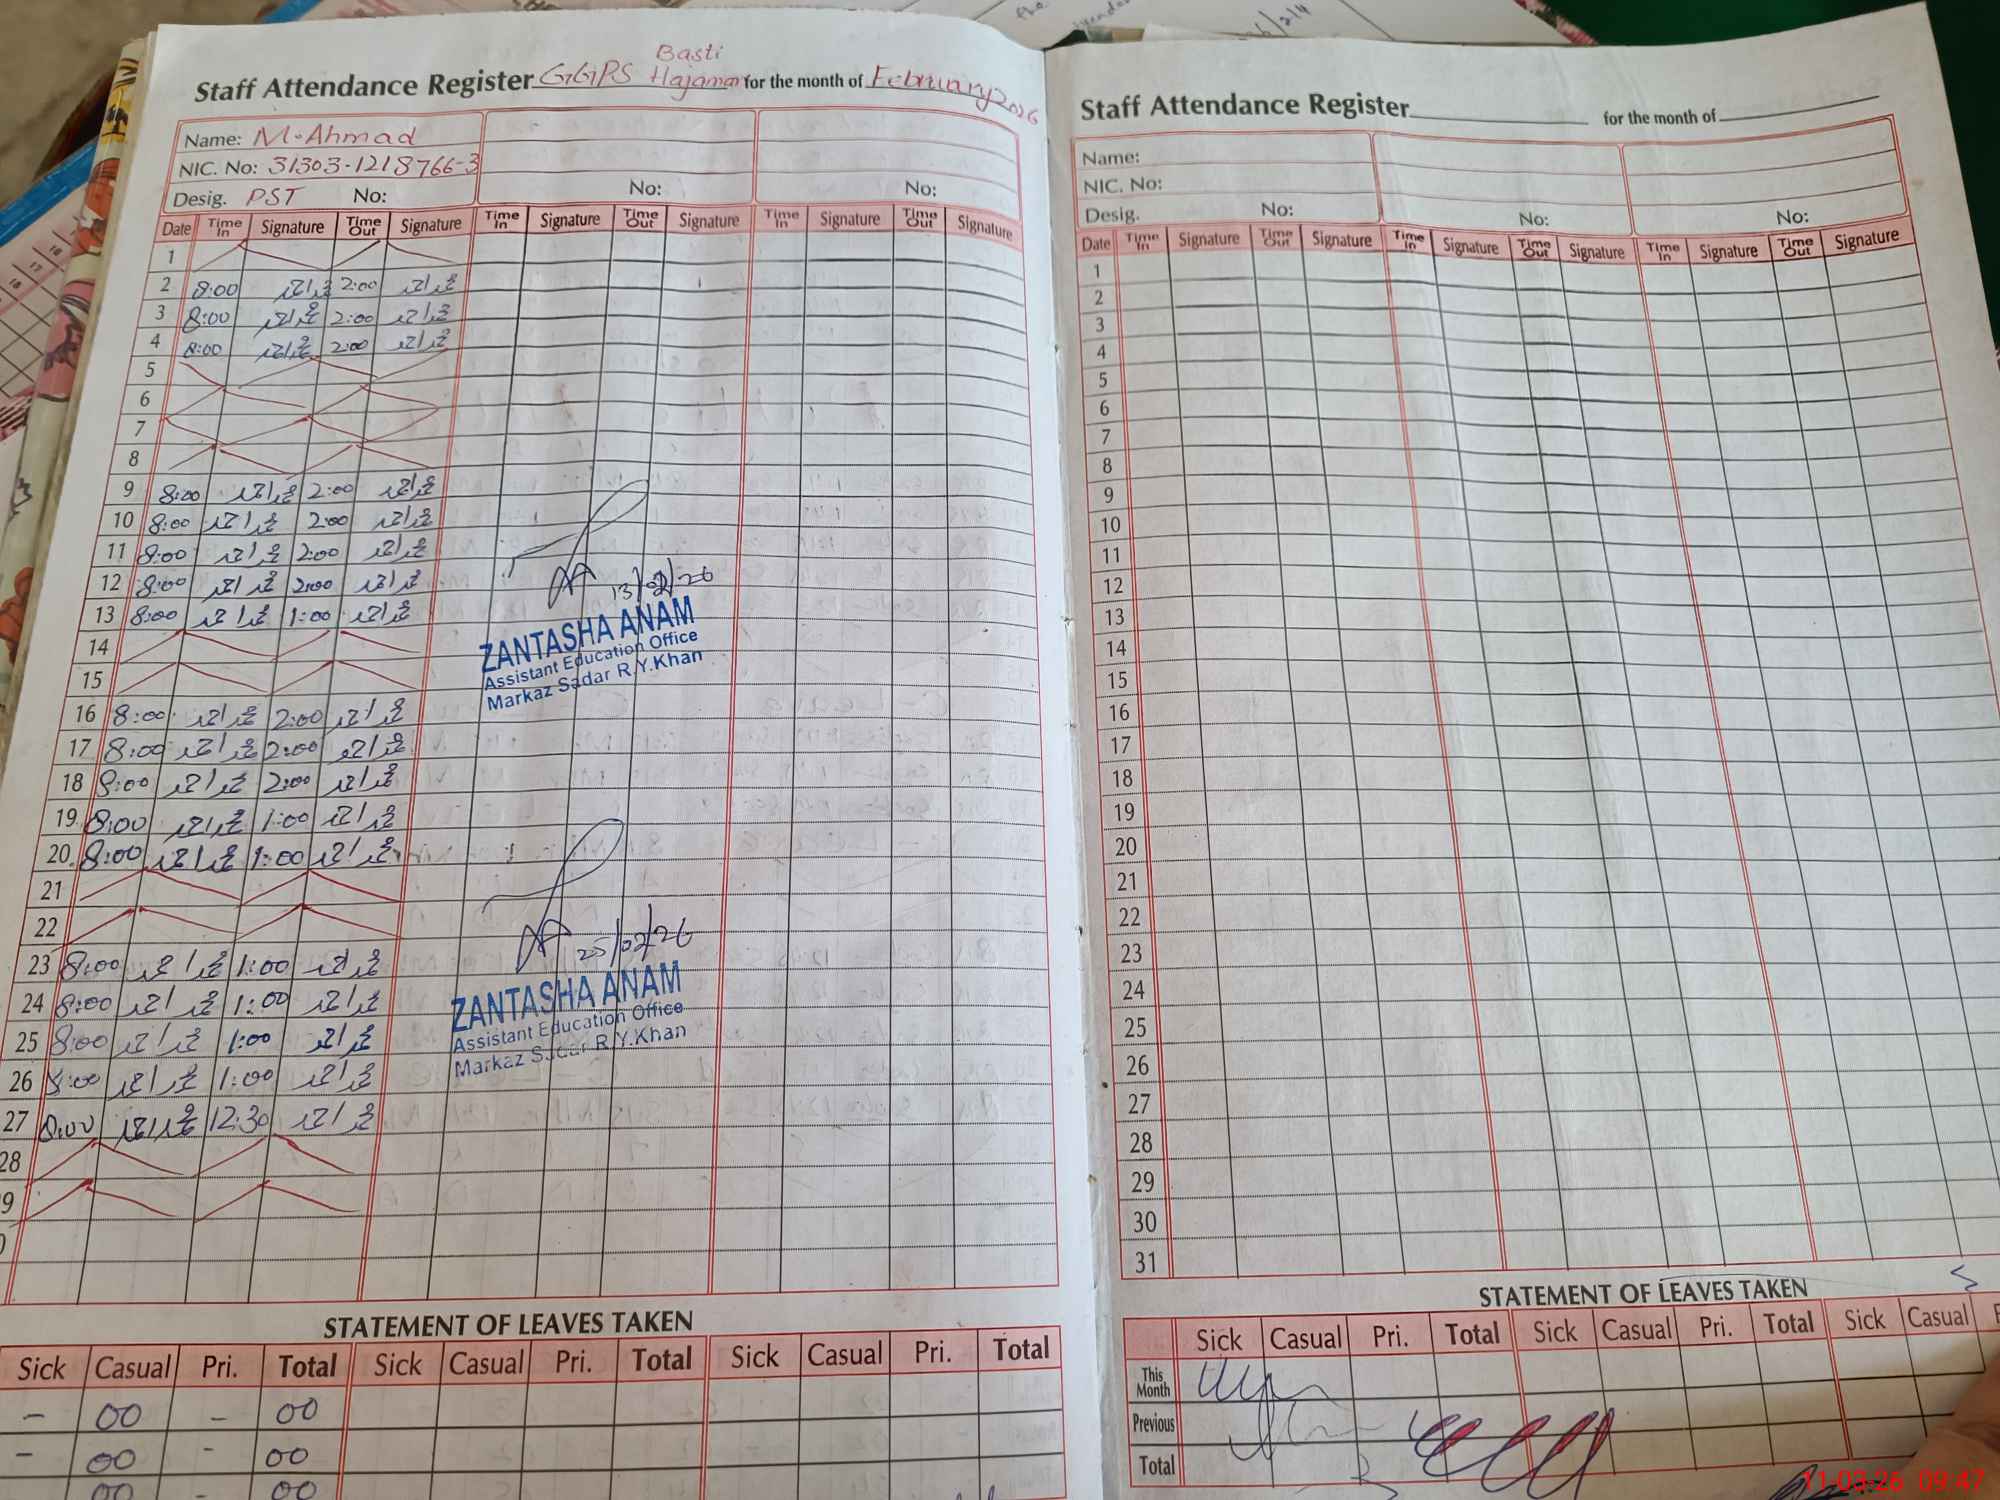 Staff Attendance Register GGPS Basti Hajaman for the month of February 2026
Name: M.Ahmad
NIC. No: 31303-1218766-3
Desig. PST No: No: No:
Date Time In Signature Time Out Signature Time In Signature Time Out Signature Time In Signature Time Out Signature
1
2 8:00 محمد احمد 2:00 محمد احمد
3 8:00 محمد احمد 2:00 محمد احمد
4 8:00 محمد احمد 2:00 محمد احمد
5
6
7
8
9 8:00 محمد احمد 2:00 محمد احمد
10 8:00 محمد احمد 2:00 محمد احمد
11 8:00 محمد احمد 2:00 محمد احمد
12 8:00 محمد احمد 2:00 محمد احمد
13 8:00 محمد احمد 1:00 محمد احمد
13/02/26
ZANTASHA ANAM
Assistant Education Office
Markaz Sadar R.Y.Khan
14
15
16 8:00 محمد احمد 2:00 محمد احمد
17 8:00 محمد احمد 2:00 محمد احمد
18 8:00 محمد احمد 2:00 محمد احمد
19 8:00 محمد احمد 1:00 محمد احمد
20 8:00 محمد احمد 1:00 محمد احمد
21
22
23 8:00 محمد احمد 1:00 محمد احمد
24 8:00 محمد احمد 1:00 محمد احمد
25 8:00 محمد احمد 1:00 محمد احمد
25/02/26
ZANTASHA ANAM
Assistant Education Office
Markaz Sadar R.Y.Khan
26 8:00 محمد احمد 1:00 محمد احمد
27 8:00 محمد احمد 12:30 محمد احمد
28
9
0
STATEMENT OF LEAVES TAKEN
Sick Casual Pri. Total Sick Casual Pri. Total Sick Casual Pri. Total
- 00 - 00
- 00 - 00
00 - 00
Staff Attendance Register for the month of
Name:
NIC. No:
Desig. No: No: No:
Date Time In Signature Time Out Signature Time In Signature Time Out Signature Time In Signature Time Out Signature
1
2
3
4
5
6
7
8
9
10
11
12
13
14
15
16
17
18
19
20
21
22
23
24
25
26
27
28
29
30
31
STATEMENT OF LEAVES TAKEN
Sick Casual Pri. Total Sick Casual Pri. Total Sick Casual
This Month
Previous
Total
11-03-26 09:47